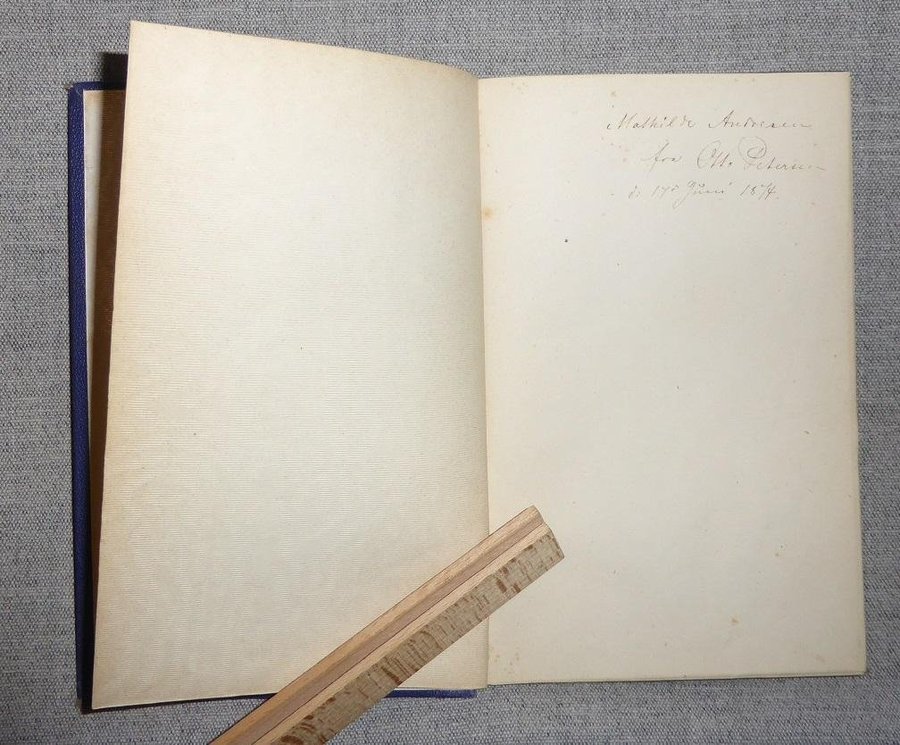 Mathilde Andresen
fra Otto Petersen
d. 17de Juni 1874.